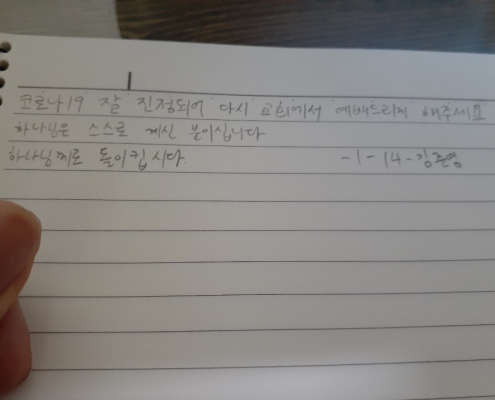 코로나19 잘 진정되어 다시 교회에서 예배드리게 해주세요
하나님은 스스로 계신 분이십니다
하나님께로 돌이킵시다 -1-14-김준영